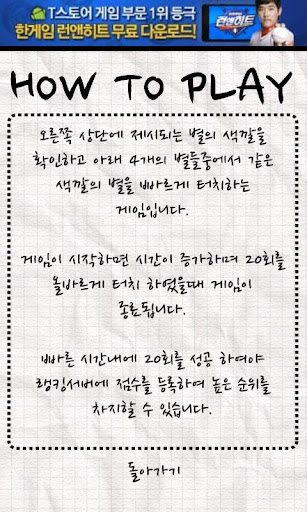 T스토어 게임 부문 1위 등극
한게임 런앤히트 무료 다운로드!
런앤히트
HOW TO PLAY
오른쪽 상단에 제시되는 별의 색깔을
확인하고 아래 4개의 별들중에서 같은
색깔의 별을 빠르게 터치하는
게임입니다.
게임이 시작하면 시간이 증가하며 20회를
올바르게 터치 하였을때 게임이
종료됩니다.
빠른 시간내에 20회를 성공 하여야
랭킹서버에 점수를 등록하여 높은 순위를
차지할 수 있습니다.
돌아가기